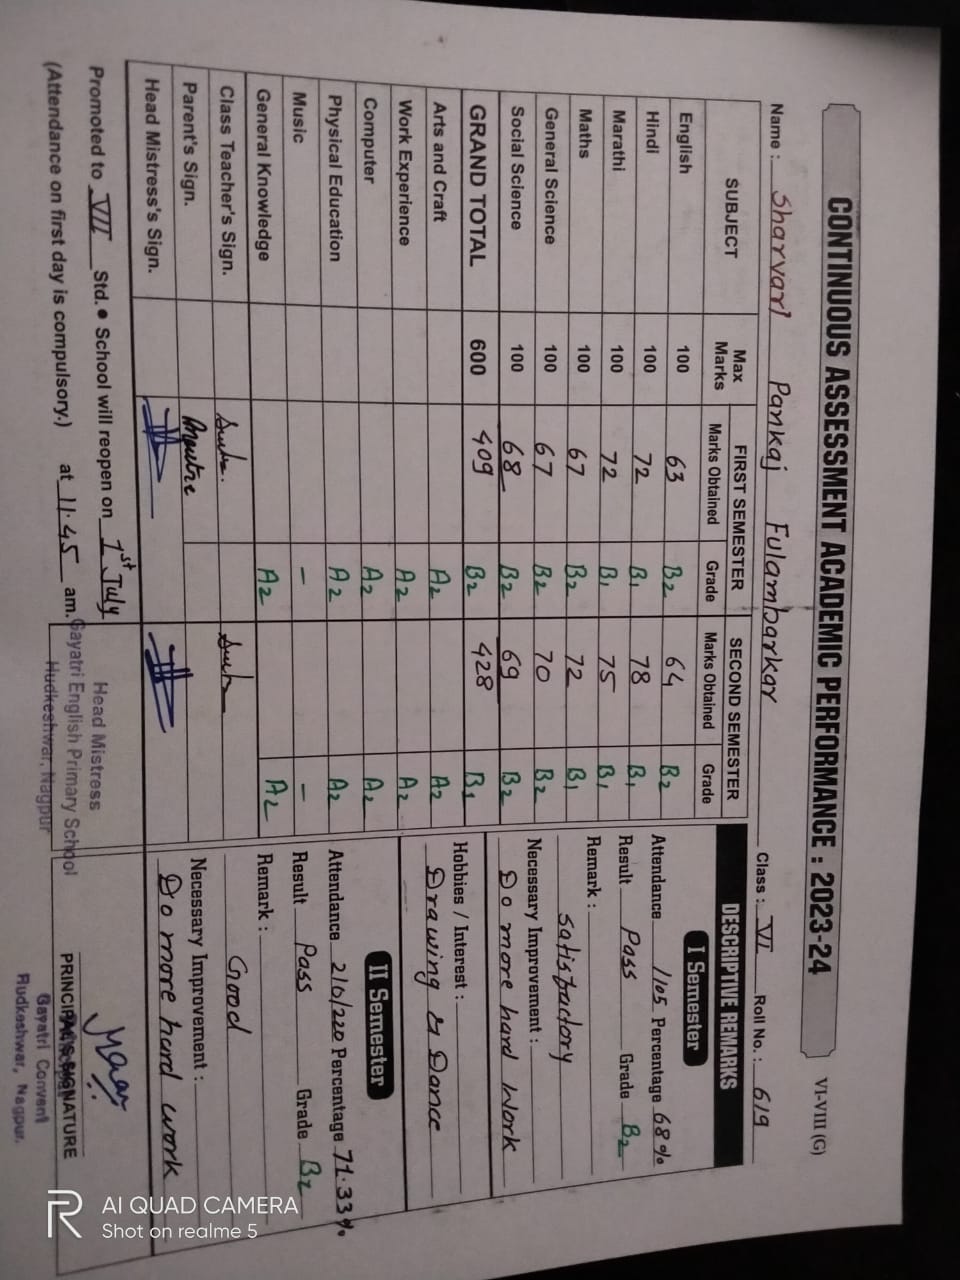 CONTINUOUS ASSESSMENT ACADEMIC PERFORMANCE : 2023-24
VI-VIII (G)
Name : Sharvari Pankaj Fulambarkar Class : VI Roll No. : 619
SUBJECT Max Marks FIRST SEMESTER SECOND SEMESTER
Marks Obtained Grade Marks Obtained Grade
English 100 63 B2 64 B2
Hindi 100 72 B1 78 B1
Marathi 100 72 B1 75 B1
Maths 100 67 B2 72 B1
General Science 100 67 B2 70 B2
Social Science 100 68 B2 69 B2
GRAND TOTAL 600 409 B2 428 B1
Arts and Craft A2 A2
Work Experience A2 A2
Computer A2 A2
Physical Education A2 A2
Music - -
General Knowledge A2 A2
Class Teacher's Sign.
Parent's Sign.
Head Mistress's Sign.
DESCRIPTIVE REMARKS
I Semester
Attendance 1105 Percentage 68%
Result Pass Grade B2
Remark :
Satisfactory
Necessary Improvement :
Do more hard work
Hobbies / Interest :
Drawing & Dance
II Semester
Attendance 210/220 Percentage 71.33%
Result Pass Grade B2
Remark :
Good
Necessary Improvement :
Do more hard work
Promoted to VII Std. • School will reopen on 1st July
(Attendance on first day is compulsory.) at 11.45 am.
Head Mistress
Gayatri English Primary School
Hudkeshwar, Nagpur
PRINCIPAL'S SIGNATURE
Gayatri Convent
Hudkeshwar, Nagpur.
R AI QUAD CAMERA
Shot on realme 5